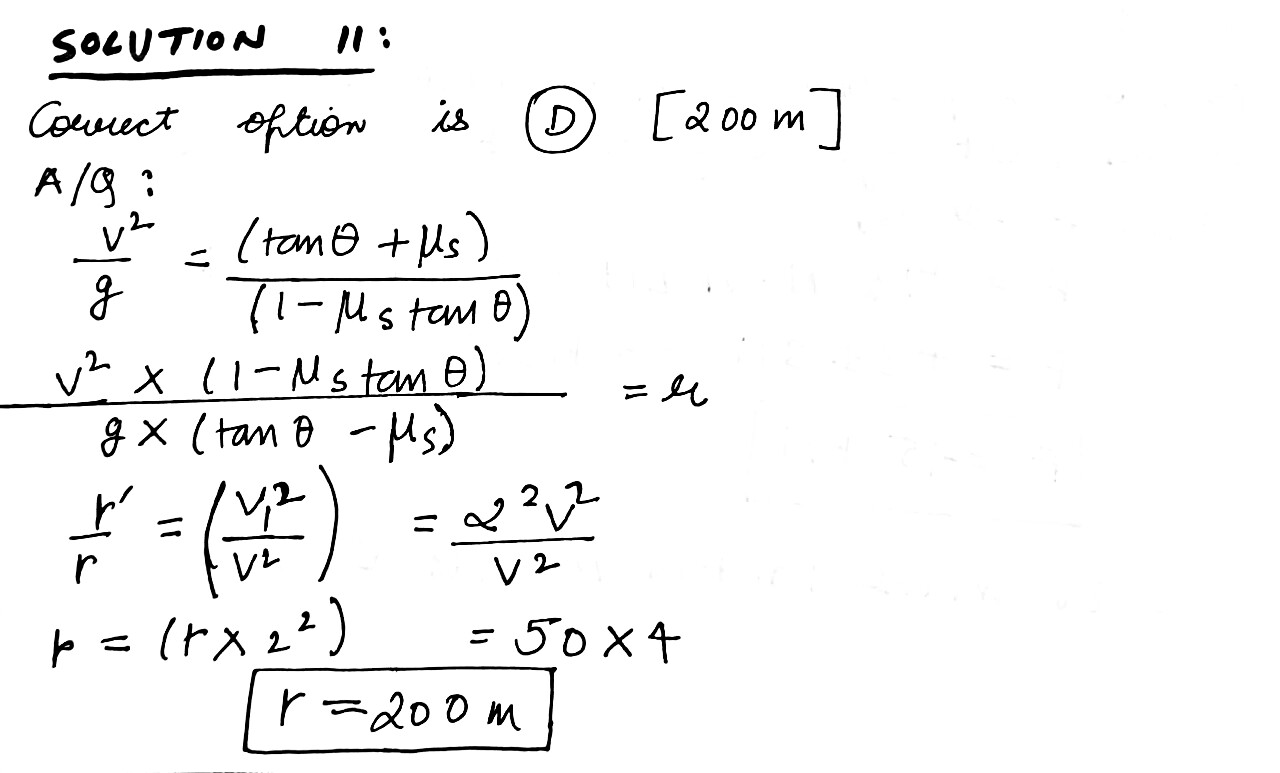 SOLUTION 11:
Correct option is (D) [200 m]
A/Q:
v²/g = (tanθ + μs)/(1 - μs tan θ)
v² × (1 - μs tan θ)/g × (tan θ - μs) = r
r'/r = (v₁²/v²) = 2²v²/v²
r = (r × 2²) = 50 × 4
r = 200 m